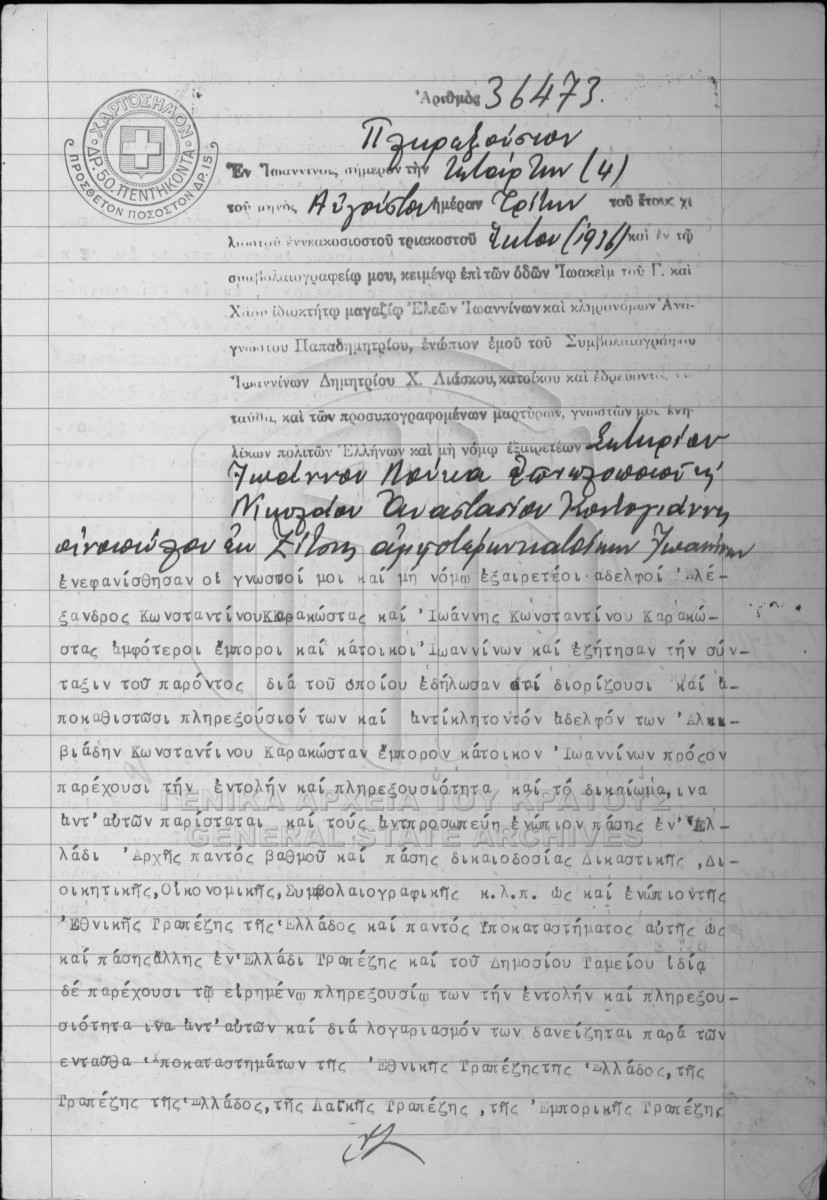 Ἀριθμὸς 36473.
ΧΑΡΤΟΣΗΜΟΝ
ΔΡ. 50. ΠΕΝΤΗΚΟΝΤΑ
ΠΡΟΣΘΕΤΟΝ ΠΟΣΟΣΤΟΝ ΔΡ. 15
Πληρεξούσιον
Ἐν Ἰωαννίνοις σήμερον τὴν τετάρτην (4)
τοῦ μηνὸς Αὐγούστου ἡμέραν Τρίτην τοῦ ἔτους χι
λιοστοῦ ἐννεακοσιοστοῦ τριακοστοῦ ἕκτου (1936) καὶ ἐν τῷ
συμβολαιογραφείῳ μου, κειμένῳ ἐπὶ τῶν ὁδῶν Ἰωακεὶμ τοῦ Γ. καὶ
ἰδιοκτήτῳ μαγαζίῳ Ἐλεῶν Ἰωαννίνων καὶ κληρονόμων Ἀνα-
γνώστου Παπαδημητρίου, ἐνώπιον ἐμοῦ τοῦ Συμβολαιογράφου
Ἰωαννίνων Δημητρίου Χ. Λιάσκου, κατοίκου καὶ ἑδρεύοντος ἐν-
ταῦθα, καὶ τῶν προσυπογραφομένων μαρτύρων, γνωστῶν μοι ἐνη-
λίκων πολιτῶν Ἑλλήνων καὶ μὴ νόμῳ ἐξαιρετέων Σωτηρίου
Ἰωάννου Λούκα
Νικολάου Ἀναστασίου
ἐκ Ζίτσης ἀμφοτέρων κατοίκων Ἰωαννίνων
ἐνεφανίσθησαν οἱ γνωστοί μοι καί μή νόμῳ ἐξαιρετέοι ἀδελφοί Ἀλέ-
ξανδρος Κωνσταντίνου Καρακώστας καί Ἰωάννης Κωνσταντίνου Καρακώ-
στας ἀμφότεροι ἔμποροι καί κάτοικοι Ἰωαννίνων καί ἐζήτησαν τήν σύν-
ταξιν τοῦ παρόντος διά τοῦ ὁποίου ἐδήλωσαν ὅτι διορίζουσι καί ἀ-
ποκαθιστῶσι πληρεξούσιόν των καί ἀντίκλητον τόν ἀδελφόν των Ἀλκι-
βιάδην Κωνσταντίνου Καρακώσταν ἔμπορον κάτοικον Ἰωαννίνων πρός ὅν
παρέχουσι τήν ἐντολήν καί πληρεξουσιότητα καί τό δικαίωμα, ινα
ἀντ'αὐτῶν παρίσταται καί τούς ἀντπροσωπεύῃ ἐνώπιον πάσης ἐν Ἑλ-
λάδι Ἀρχῆς παντός βαθμοῦ καί πάσης δικαιοδοσίας Δικαστικῆς, Δι-
οικητικῆς, Οἰκονομικῆς, Συμβολαιογραφικῆς κ.λ.π. ὡς καί ἐνώπιον τῆς
Ἐθνικῆς Τραπέζης τῆς Ἑλλάδος καί παντός Υποκαταστήματος αὐτῆς ὡς
καί πάσης ἄλλης ἐν Ἑλλάδι Τραπέζης καί τοῦ Δημοσίου Ταμείου ἰδίᾳ
δέ παρέχουσι τῷ εἰρημένῳ πληρεξουσίῳ των τήν ἐντολήν καί πληρεξου-
σιότητα ινα ἀντ'αὐτῶν καί διά λογαριασμόν των δανείζηται παρά τῶν
ενταῦθα Ὑποκαταστημάτων τῆς Ἐθνικῆς Τραπέζης της Ἑλλάδος, τῆς
Τραπέζης τῆς Ἑλλάδος, τῆς Λαϊκῆς Τραπέζης, τῆς Ἐμπορικῆς Τραπέζης
ΓΕΝΙΚΑ ΑΡΧΕΙΑ ΤΟΥ ΚΡΑΤΟΥΣ
GENERAL STATE ARCHIVES